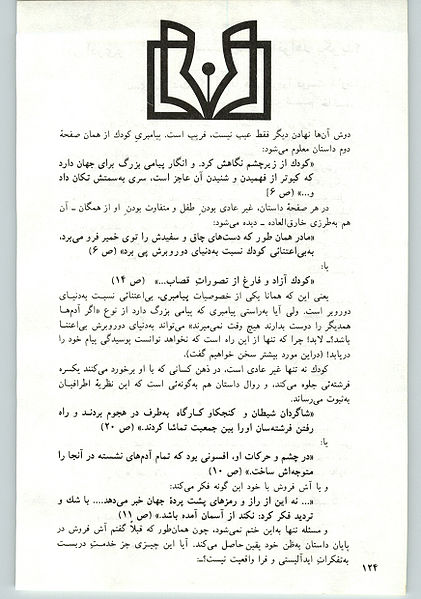 دوش آن‌ها نهادن دیگر فقط عیب نیست، فریب است. پیامبری کودك از همان صفحهٔ
دوم داستان معلوم می‌شود:
«کودك از زیرچشم نگاهش کرد. و انگار پیامی بزرگ برای جهان دارد
که کبوتر از فهمیدن و شنیدن آن عاجز است، سری به‌سمتش تکان داد
و...» (ص ۶]
در هر صفحهٔ داستان، غیر عادی بودن طفل و متفاوت بودن او از همگان ـ آن
هم به‌طرزی خارق‌العاده ـ دیده می‌شود:
«مادر همان طور که دست‌های چاق و سفیدش را توی خمیر فرو می‌برد،
به‌بی‌اعتنائی کودك نسبت به‌دنیای دوروبرش پی برد» (ص ۶)
یا:
«کودك آزاد و فارغ از تصورات قصاب...» (ص ۱۴)
یعنی این که همانا یکی از خصوصیات پیامبری، بی‌اعتنائی نسبت به‌دنیای
دوروبر است. ولی آیا به‌راستی پیامبری که پیامی بزرگ دارد از نوع «اگر آدم‌ها
همدیگر را دوست بدارند هیچ وقت نمی‌میرند» می‌تواند به‌دنیای دوروبرش بی‌اعتنا
باشد؟ـ لابد! چرا که تنها از این راه است که نخواهد توانست پوسیدگی پیام خود را
دریابد! (دراین مورد بیشتر سخن خواهیم گفت).
کودك نه تنها غیر عادی است، در ذهن کسانی که با او برخورد می‌کنند یکسره
فرشته‌ئی جلوه می‌کند، و روال داستان هم به‌گونه‌ئی است که این نظریهٔ اطرافیان
به‌ثبوت می‌رساند.
«شاگردان شیطان و کنجکاو کارگاه به‌طرف در هجوم بردند و راه
رفتن فرشته‌سان اورا بین جمعیت تماشا کردند.» (ص ۲۰)
یا:
«در چشم و حرکات او، افسونی بود که تمام آدم‌های نشسته در آنجا را
متوجه‌اش ساخت.» (ص ۱۰)
و یا آش فروش با خود این گونه فکر می‌کند:
«... نه این از راز و رمزهای پشت پردهٔ جهان خبر می‌دهد.... با شك و
تردید فکر کرد: نکند از آسمان آمده باشد.» (ص ۱۱)
و مسئله تنها به‌این ختم نمی‌شود، چون همان‌طور که قبلاً گفتم آش فروش در
پایان داستان به‌ظن خود یقین حاصل می‌کند. آیا این چیزی جز خدمت دربست
به‌تفکرات ایدآلیستی و فرا واقعیت نیست؟ـ
۱۲۴